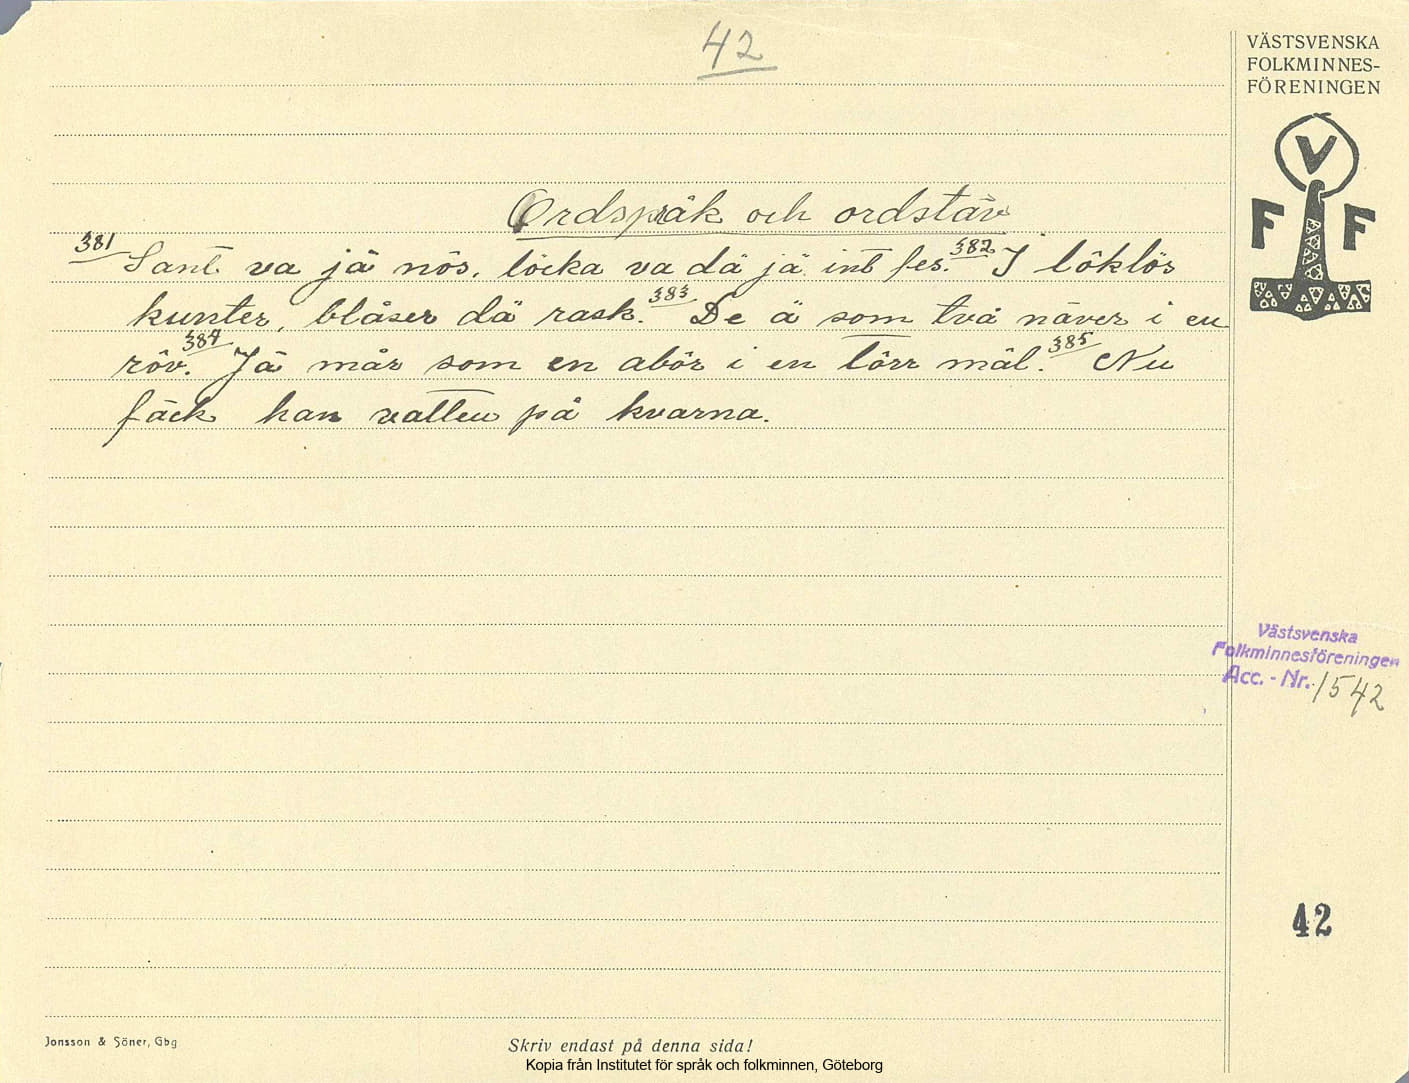 42
VÄSTSVENSKA
FOLKMINNES-
FÖRENINGEN
V
F F
Ordspråk och ordstäv
381 Sant va jä nös, löcka va dä jä int fes. 382 I löklös
kunter, blåser dä rask. 383 De ä som två näver i en
röv. 384 Jä mår som en abör i en törr mäl. 385 Nu
fäck han vatten på kvarna.
Västsvenska
Folkminnesföreningen
Acc. - Nr. 1542
42
Jonsson & Söner, Gbg
Skriv endast på denna sida!
Kopia från Institutet för språk och folkminnen, Göteborg